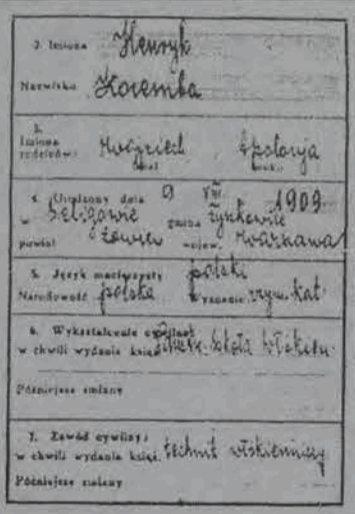 2. Imiona Henryk
Nazwisko Zaremba
3.
Imiona
rodziców: Wojciech Apolonja
4. Urodzony dnia 9 VIII 1909
w Seligowie gmina Łyszkowice
powiat Łowicz wojew. Warszawa
5. Język macierzysty polski
Narodowość polska Wyznanie rzym. kat.
6. Wykształcenie cywilne:
w chwili wydania książ. Szkoła Włókien.
Późniejsze zmiany
7. Zawód cywilny:
w chwili wydania książ. technik włókienniczy
Późniejsze zmiany